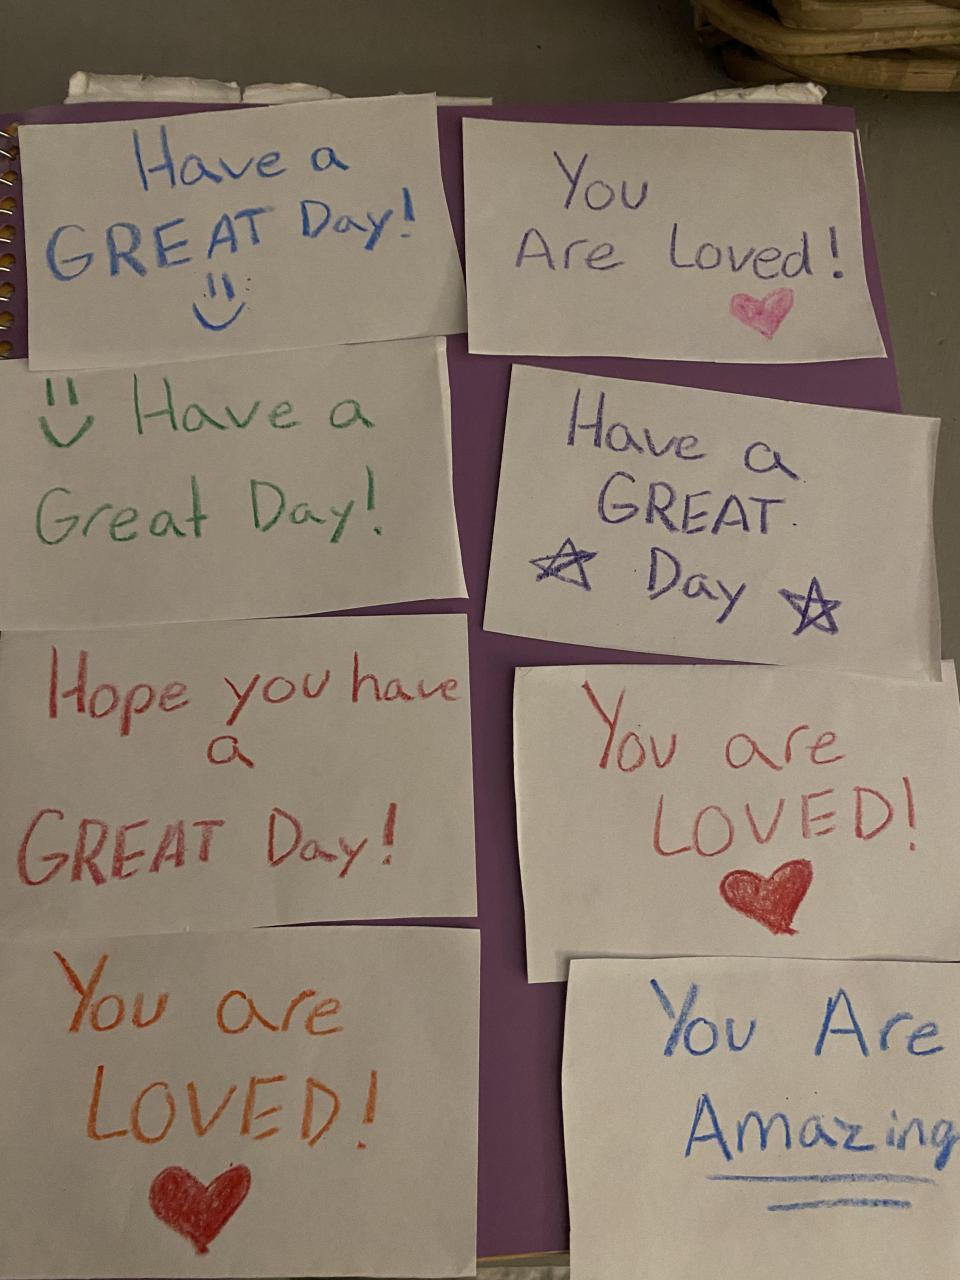 Have a
GREAT Day!
You
Are Loved!
Have a
Great Day!
Have a
GREAT
Day
Hope you have
a
GREAT Day!
You are
LOVED!
You are
LOVED!
You Are
Amazing